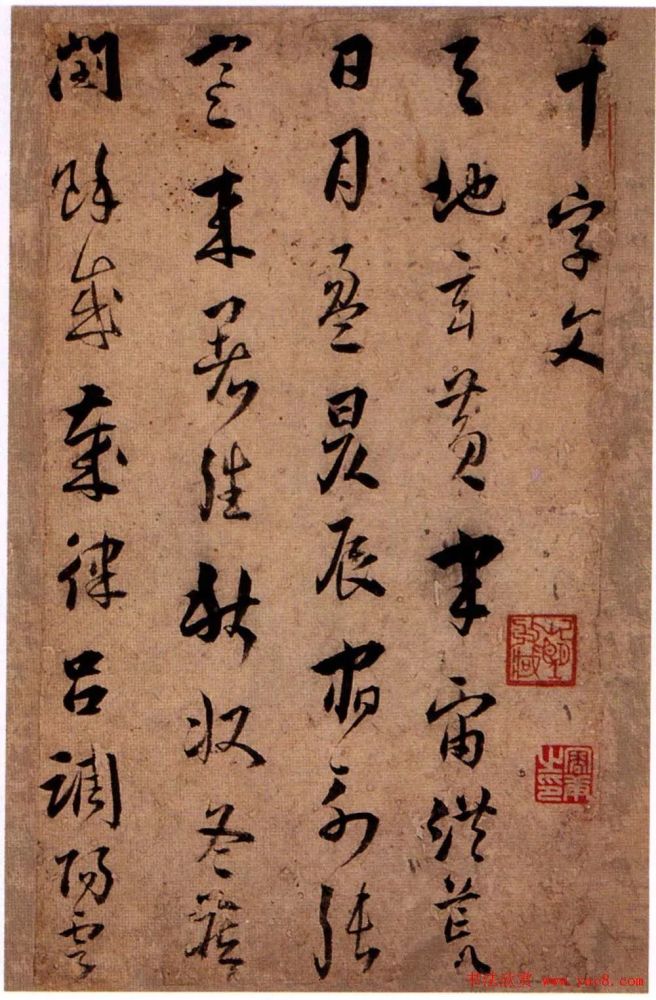 千字文
天地玄黄宇宙洪荒
日月盈昃辰宿列張
寒来暑往秋收冬藏
閏餘成歲律吕調陽雲
书法欣赏 www.yac8.com